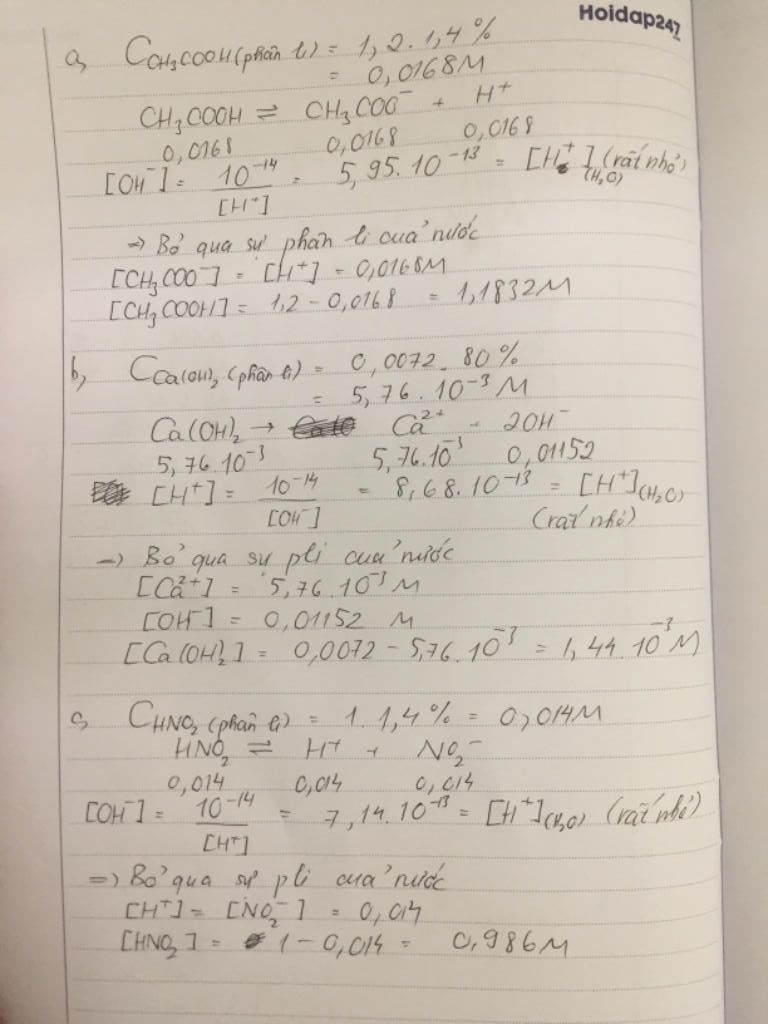 Hoidap247
a, C CH₃COOH (phân li) = 1,2. 1,4 %
= 0,0168M
CH₃COOH ⇌ CH₃COO⁻ + H⁺
0,0168 0,0168 0,0168
[OH⁻] = 10⁻¹⁴ / [H⁺] = 5,95.10⁻¹³ = [H⁺](H₂O) (rất nhỏ)
⇒ Bỏ qua sự phân li của nước
[CH₃COO⁻] = [H⁺] = 0,0168M
[CH₃COOH] = 1,2 - 0,0168 = 1,1832M
b, C Ca(OH)₂ (phân li) = 0,0072. 80 %
= 5,76. 10⁻³ M
Ca(OH)₂ → Ca²⁺ + 2OH⁻
5,76.10⁻³ 5,76.10⁻³ 0,01152
[H⁺] = 10⁻¹⁴ / [OH⁻] = 8,68.10⁻¹³ = [H⁺](H₂O)
(rất nhỏ)
⇒ Bỏ qua sự pli của nước
[Ca²⁺] = 5,76.10⁻³ M
[OH⁻] = 0,01152 M
[Ca(OH)₂] = 0,0072 - 5,76.10⁻³ = 1,44.10⁻³ M
c, C HNO₂ (phân li) = 1. 1,4 % = 0,014M
HNO₂ ⇌ H⁺ + NO₂⁻
0,014 0,014 0,014
[OH⁻] = 10⁻¹⁴ / [H⁺] = 7,14.10⁻¹³ = [H⁺](H₂O) (rất nhỏ)
⇒ Bỏ qua sự pli của nước
[H⁺] = [NO₂⁻] = 0,014
[HNO₂] = 1 - 0,014 = 0,986M